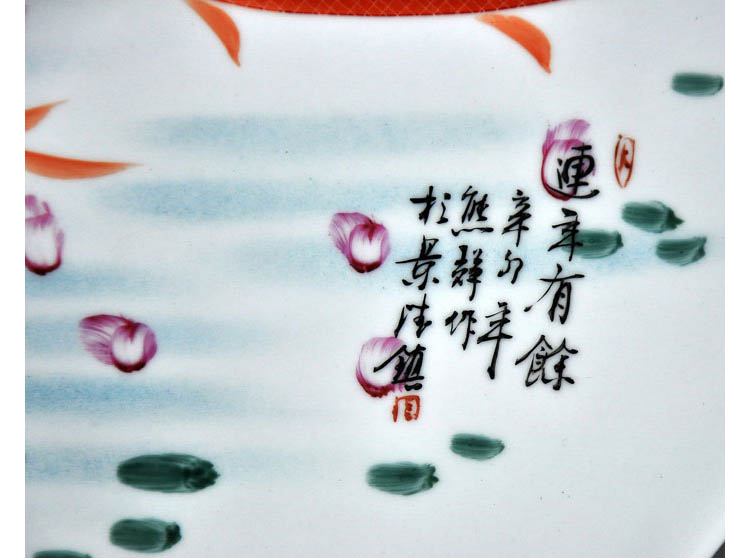 連年有餘
辛卯年
熊群作
於景德鎮